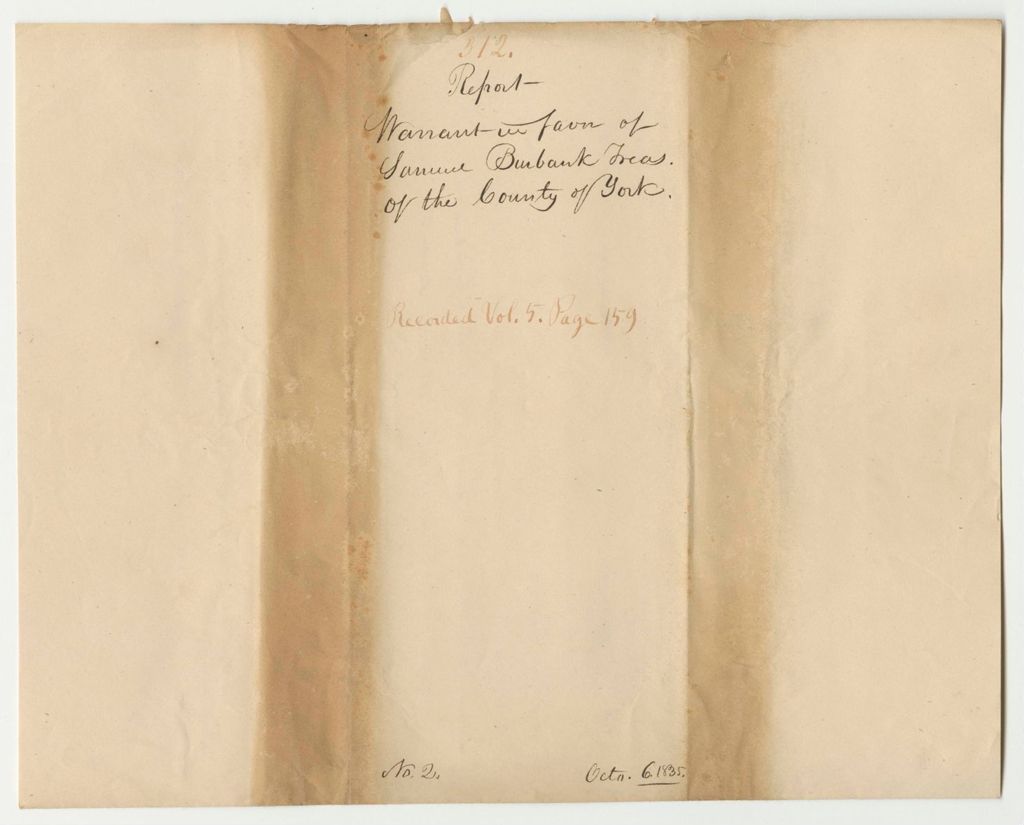 312.
Report-
Warrant in favor of
Samuel Burbank Treas.
of the County of York.
Recorded Vol. 5. Page 159
No. 2.
Octo. 6. 1835.